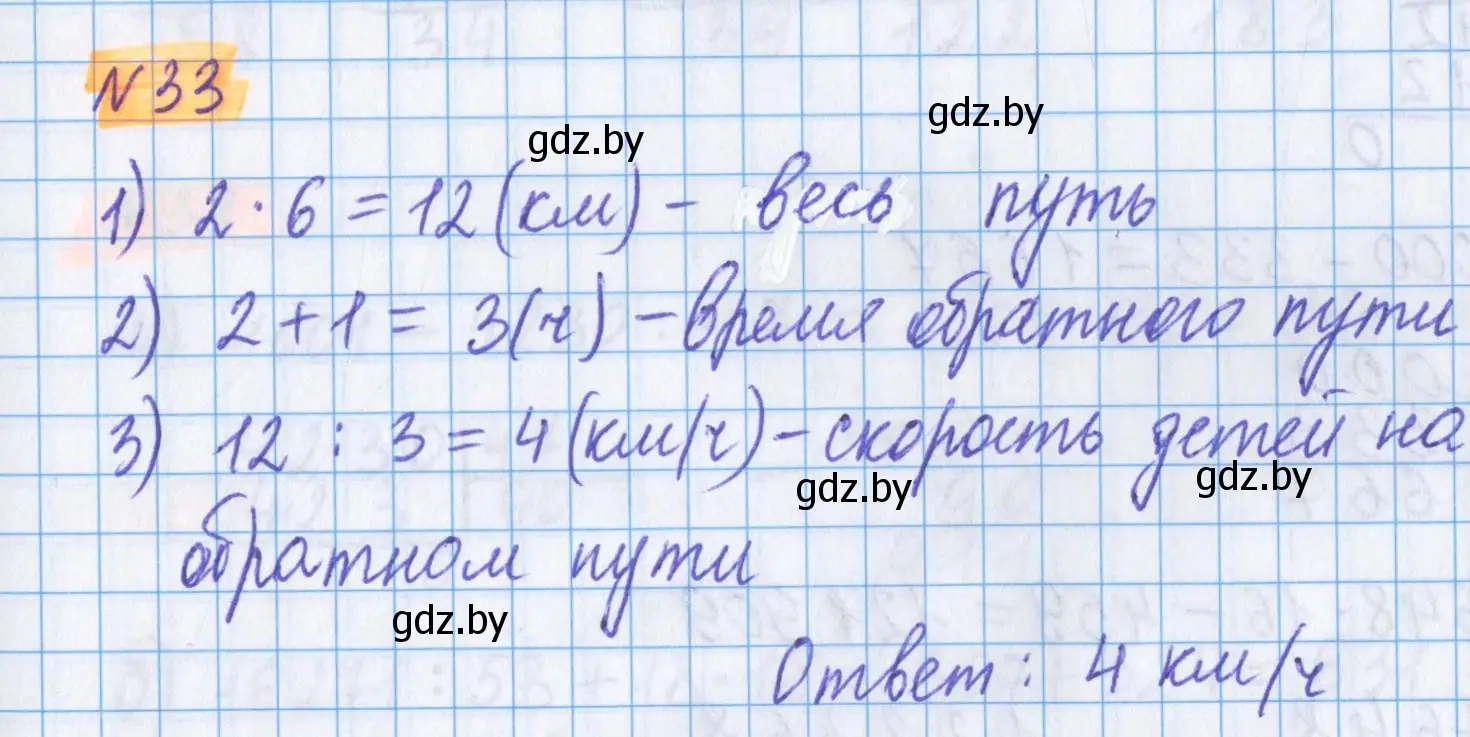 N 33
gdz.by
gdz.by
1) 2 · 6 = 12 (км) - весь путь
2) 2 + 1 = 3 (ч) - время обратного пути
3) 12 : 3 = 4 (км/ч) - скорость детей на
gdz.by
gdz.by
обратном пути
gdz.by
Ответ: 4 км/ч